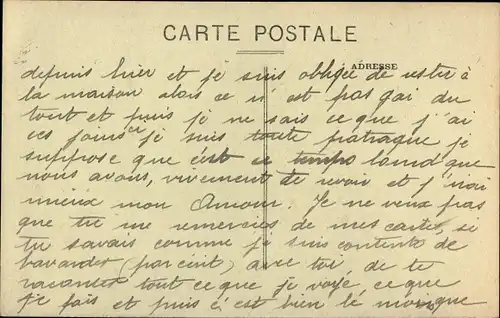 CARTE POSTALE
ADRESSE
depuis hier et je suis obligée de rester à
la maison alors ce n'est pas gai du
tout et puis je ne sais ce que j'ai
ces jours ci je suis toute patraque je
suppose que c'est ce temps lourd que
nous avons, vivement de revoir et j'irai
mieux mon Amour. Je ne veux pas
que tu me remercies de mes cartes, si
tu savais comme je suis contente de
bavarder (par écrit) avec toi, de te
raconter tout ce que je voye, ce que
je fais et puis c'est bien le